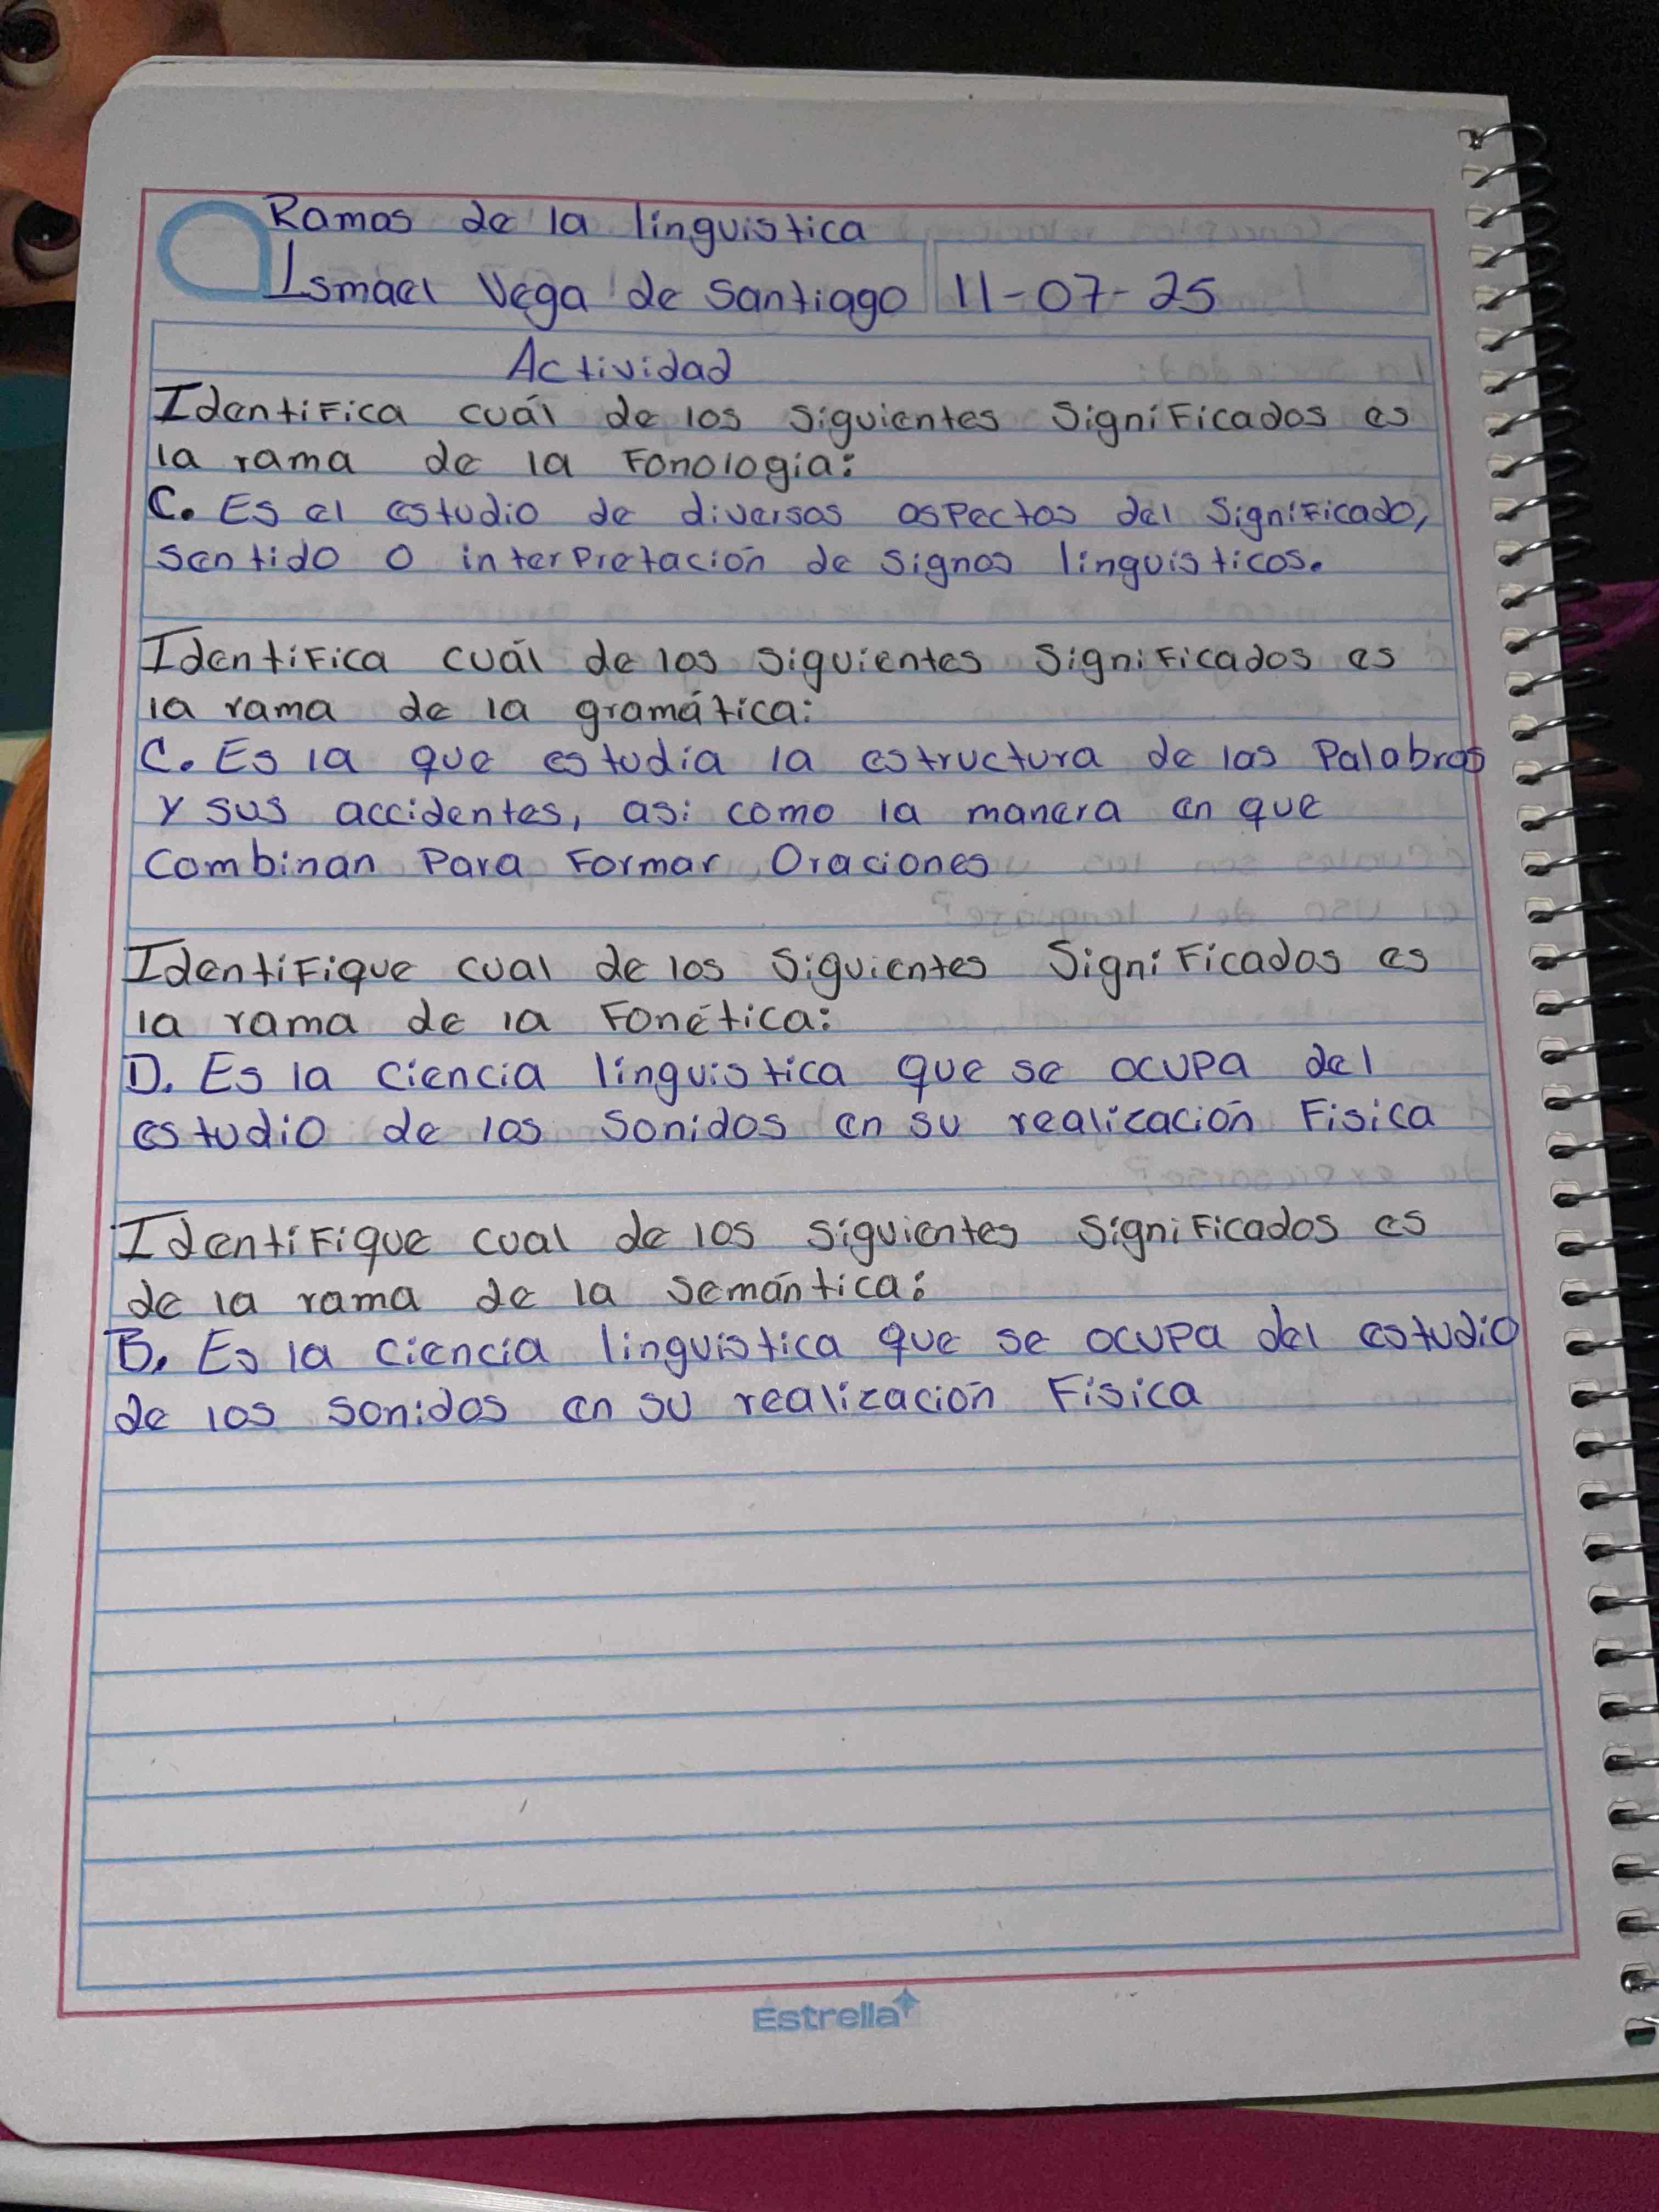 Ramas de la linguistica
Ismael Vega de Santiago 11-07-25
Actividad
Identifica cuál de los siguientes significados es
la rama de la Fonologia:
C. Es el estudio de diversos aspectos del significado,
sentido o interpretación de signos linguisticos.
Identifica cuál de los siguientes significados es
la rama de la gramática:
C. Es la que estudia la estructura de las Palabras
y sus accidentes, asi como la manera en que
Combinan Para Formar Oraciones
Identifique cual de los siguientes significados es
la rama de la Fonética:
D. Es la ciencia linguistica que se ocupa del
estudio de los sonidos en su realización Fisica
Identifique cual de los siguientes significados es
de la rama de la semántica:
B. Es la ciencia linguistica que se ocupa del estudio
de los sonidos en su realización Fisica
Estrella